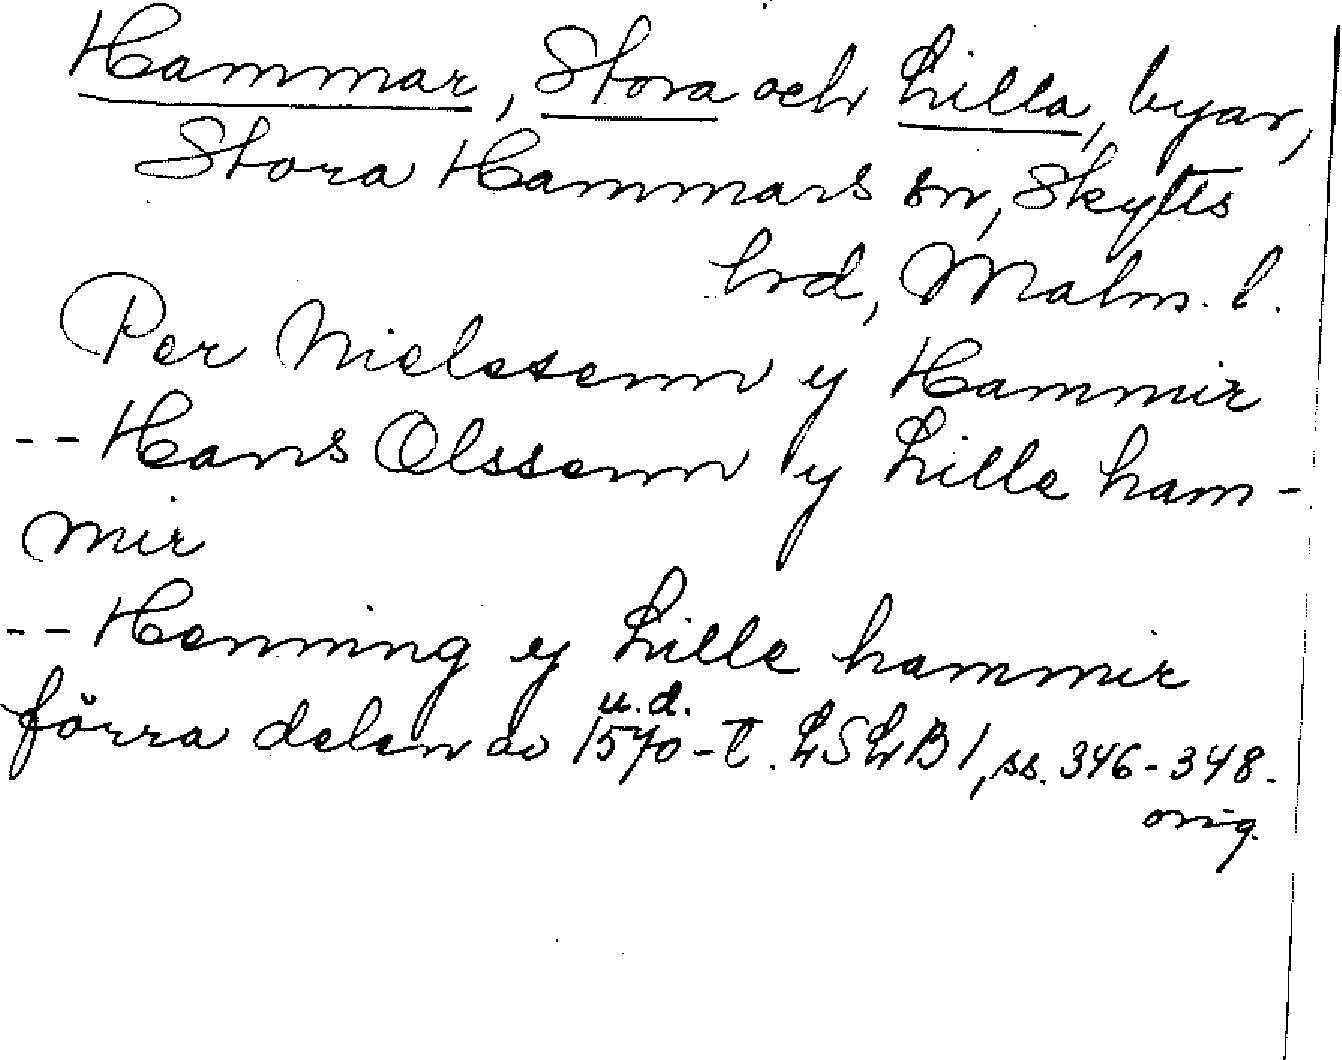 Hammar, Stora och Lilla, byar,
Stora Hammars sn, Skytts
hrd, Malm. l.
Per Nielssenn y Hammir
-- Hans Olssenn y Lille ham-
mir
-- Henning y Lille hammir
u.d.
förra delen av 1570-t. LSLB1, ss. 346-348.
orig.